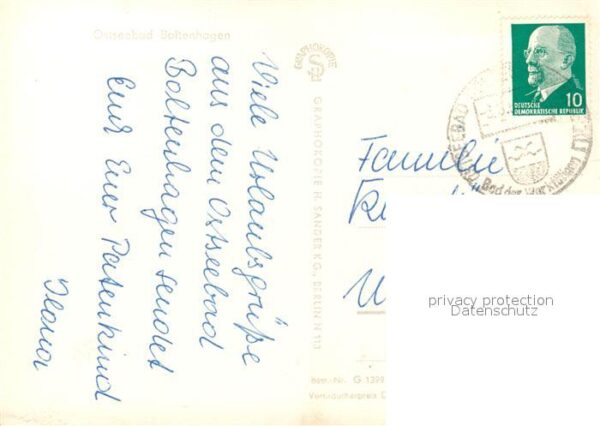 Ostseebad Boltenhagen
Viele Urlaubsgrüße
aus dem Ostseebad
Boltenhagen sendet
Euch Euer Patenkind
Ilona
GRAPHOKOPIE
GRAPHOKOPIE H. SANDER KG., BERLIN N 113
Best.-Nr. G 1399
Verbraucherpreis
DEUTSCHE
DEMOKRATISCHE REPUBLIK
10
SEEBAD
Bad der Werktätigen
Familie
privacy protection
Datenschutz